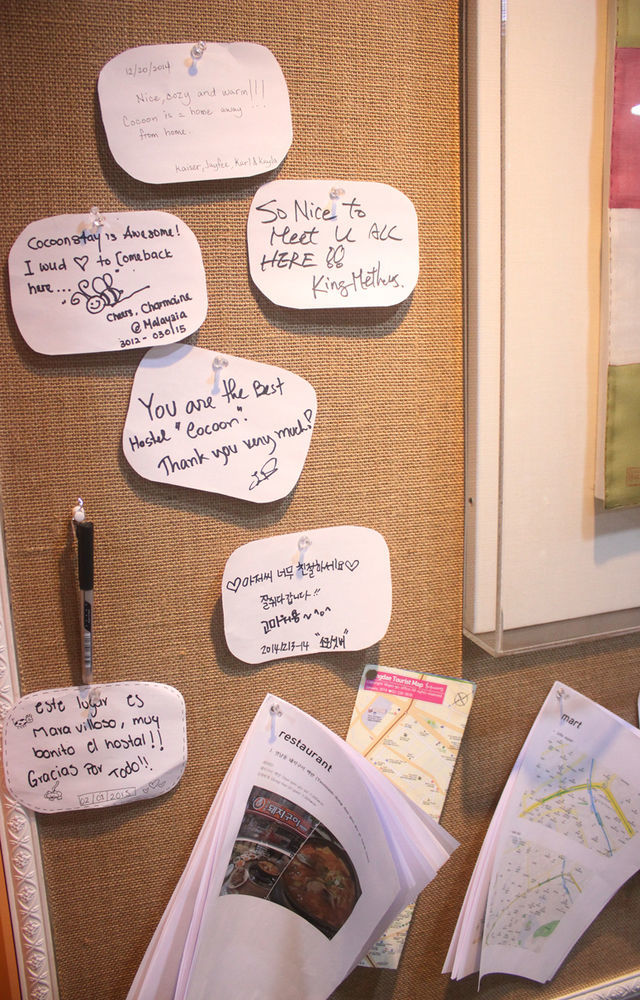 12/20/2014
Nice, cozy and warm!!!
Cocoon is a home away
from home.
Kaiser, Jayfee, Karl & Kayla
So Nice To
Meet U ALL
HERE !!
Cocoonstay is Awesome!
I wud ♡ to Comeback
here...
Cheers, Charmaine
@Malaysia
3012 - 030115
You are the Best
Hostel "Cocoon".
Thank you very much!
♡아저씨 너무 친절하세요♡
잘쉬다갑니다!!
고마워용~^o^
20141213-14
este lugar es
Maravilloso, muy
bonito el hostal!!
Gracias Por Todo!!
02/01/2015
restaurant
돼지구이
Tourist Map
mart